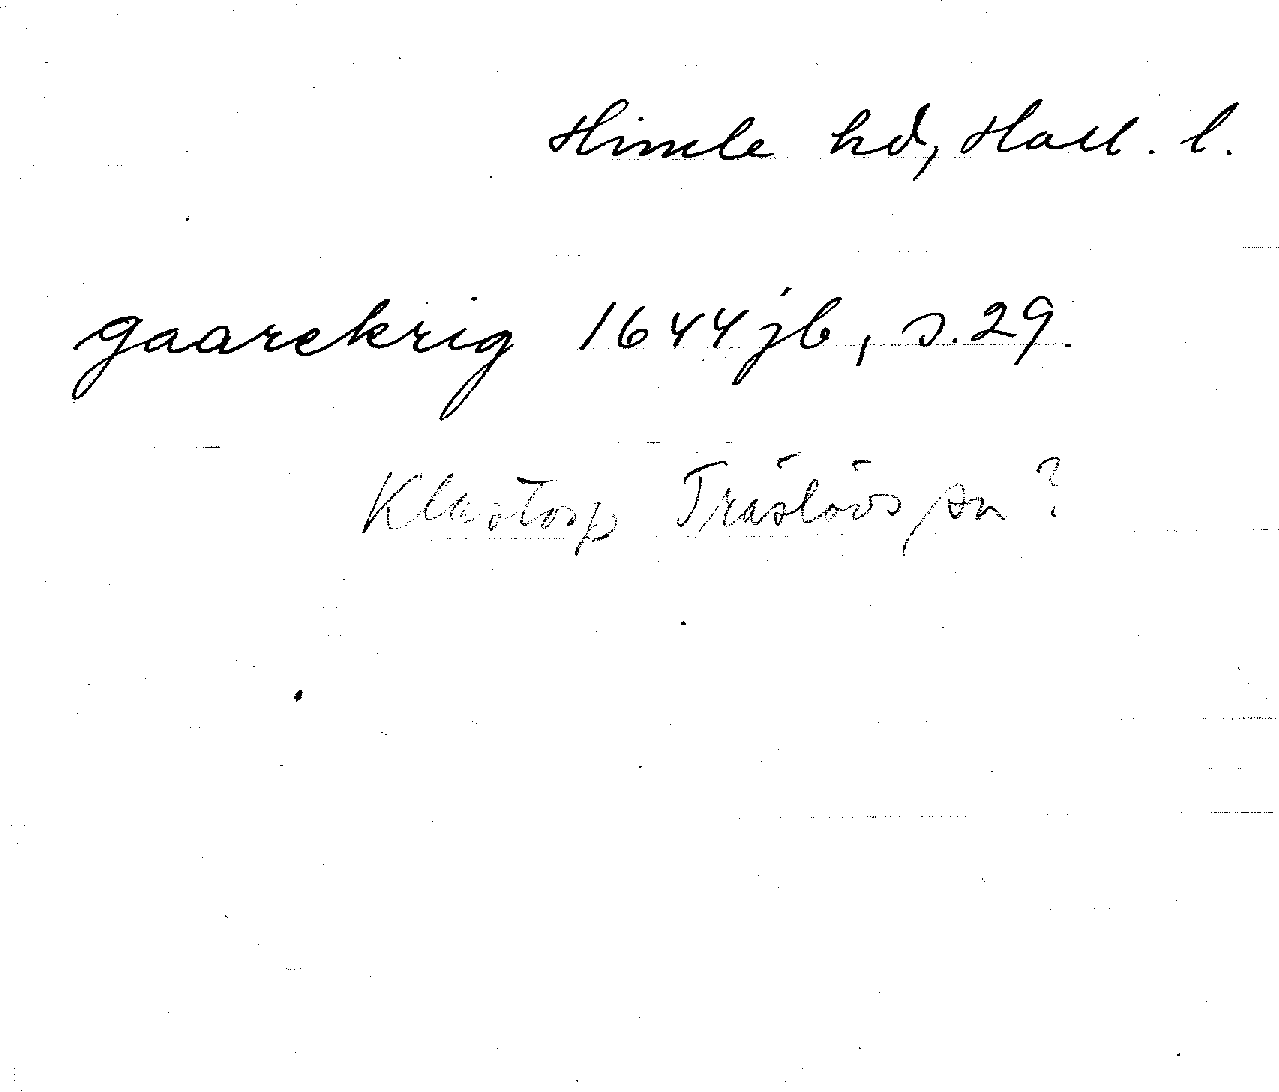 Himle hd, Hall. l.
gaarekrig 1644 jb, s. 29.
Klastorp Träslövs sn?